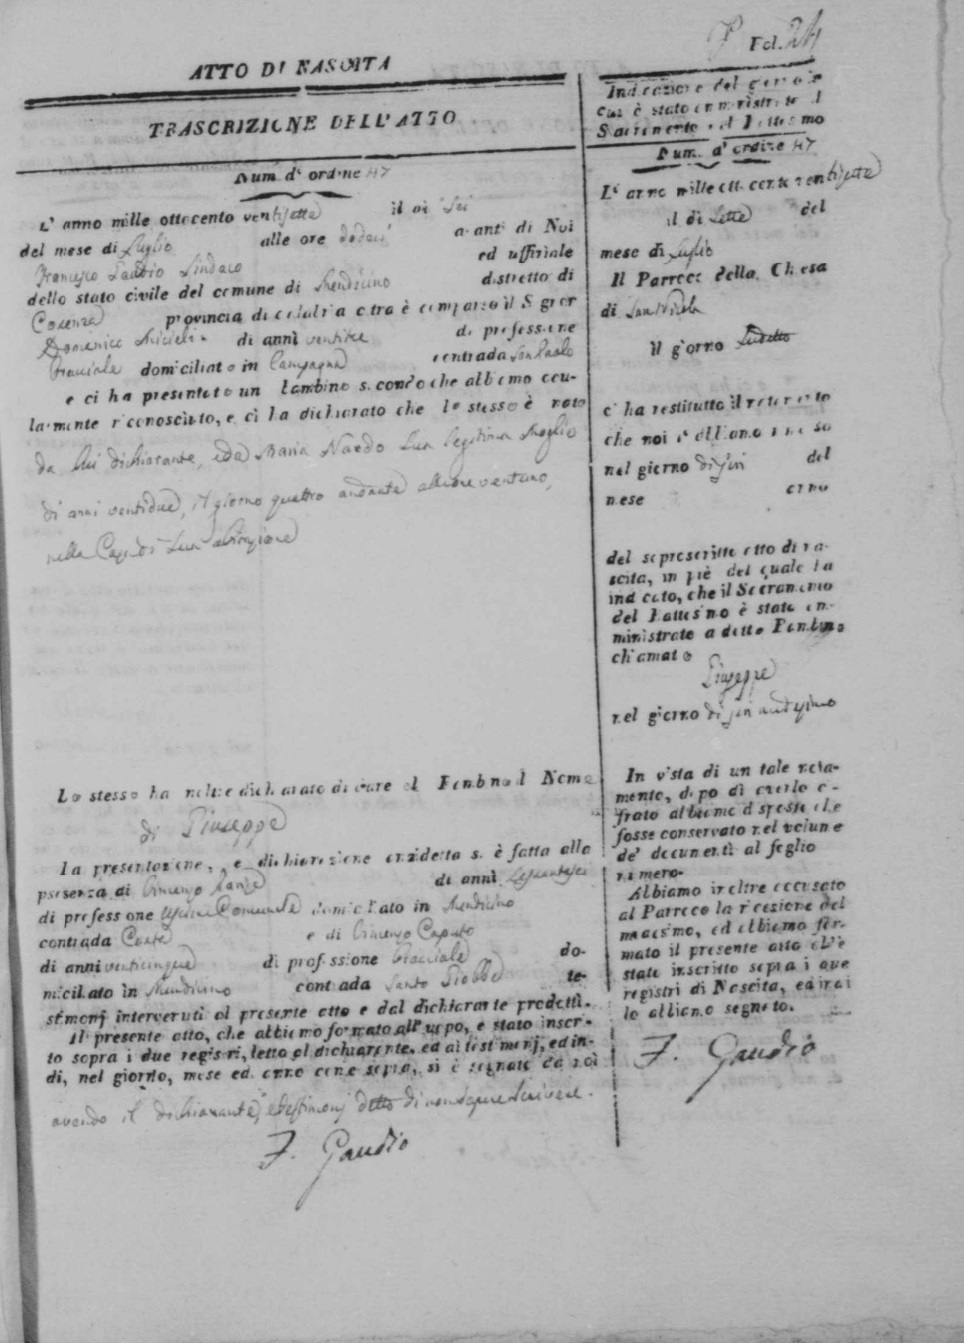 Fol. 24
ATTO DI NASCITA
TRASCRIZIONE DELL'ATTO
Num. d'ordine 47
L'anno mille ottocento ventisette il dì Sei
del mese di Luglio alle ore dodeci avanti di Noi
Francesco Gaudio Sindaco ed uffiziale
dello stato civile del comune di Mendicino distretto di
Cosenza provincia di calabria citra è comparso il Signor
Domenico Micieli di anni ventitre di professione
Bracciale domiciliato in Campagna contrada San Paolo
e ci ha presentato un bambino secondo che abbiamo ocu-
larmente riconosciuto, e ci ha dichiarato che lo stesso è nato
da lui dichiarante, e da Maria Nardo sua legittima moglie
di anni ventidue, il giorno quattro andante alle ore ventuno,
nella Casa di sua abitazione
Lo stesso ha inoltre dichiarato di dare al Bambino il Nome
di Giuseppe
La presentazione, e dichiarazione anzidetta si è fatta alla
presenza di Vincenzo di anni
di professione Comunale domiciliato in Mendicino
contrada e di Vincenzo Caputo
di anni venticinque di professione bracciale do-
miciliato in Mendicino contrada Santo te-
stimonj intervenuti al presente atto e dal dichiarante prodotti.
Il presente atto, che abbiamo formato all'uopo, è stato inscrit-
to sopra i due registri, letto al dichiarante, ed ai testimonj, ed in-
di, nel giorno, mese ed anno come sopra, si è segnato da noi
avendo il dichiarante, e testimonj detto di non sapere scrivere.
F. Gaudio
Indicazione del giorno in
cui è stato amministrato il
Sacramento del Battesimo
Num. d'ordine 47
L'anno mille ottocento ventisette
il dì Sette del
mese di Luglio
Il Parroco della Chiesa
di San Nicola
il giorno suddetto
ci ha restituito il notamento
che noi gli abbiamo rimesso
nel giorno di jeri del
mese anno
del soprascritto atto di na-
scita, in piè del quale ha
indicato, che il Sacramento
del Battesimo è stato am-
ministrato a detto Bambino
chiamato
Giuseppe
nel giorno di jeri medesimo
In vista di un tale nota-
mento, dopo di averlo ci-
frato abbiamo disposto che
fosse conservato nel volume
de' documenti al foglio
numero
Abbiamo inoltre accusato
al Parroco la ricezione del
medesimo, ed abbiamo for-
mato il presente atto ch'è
stato inscritto sopra i due
registri di Nascita, ed indi
lo abbiamo segnato.
F. Gaudio